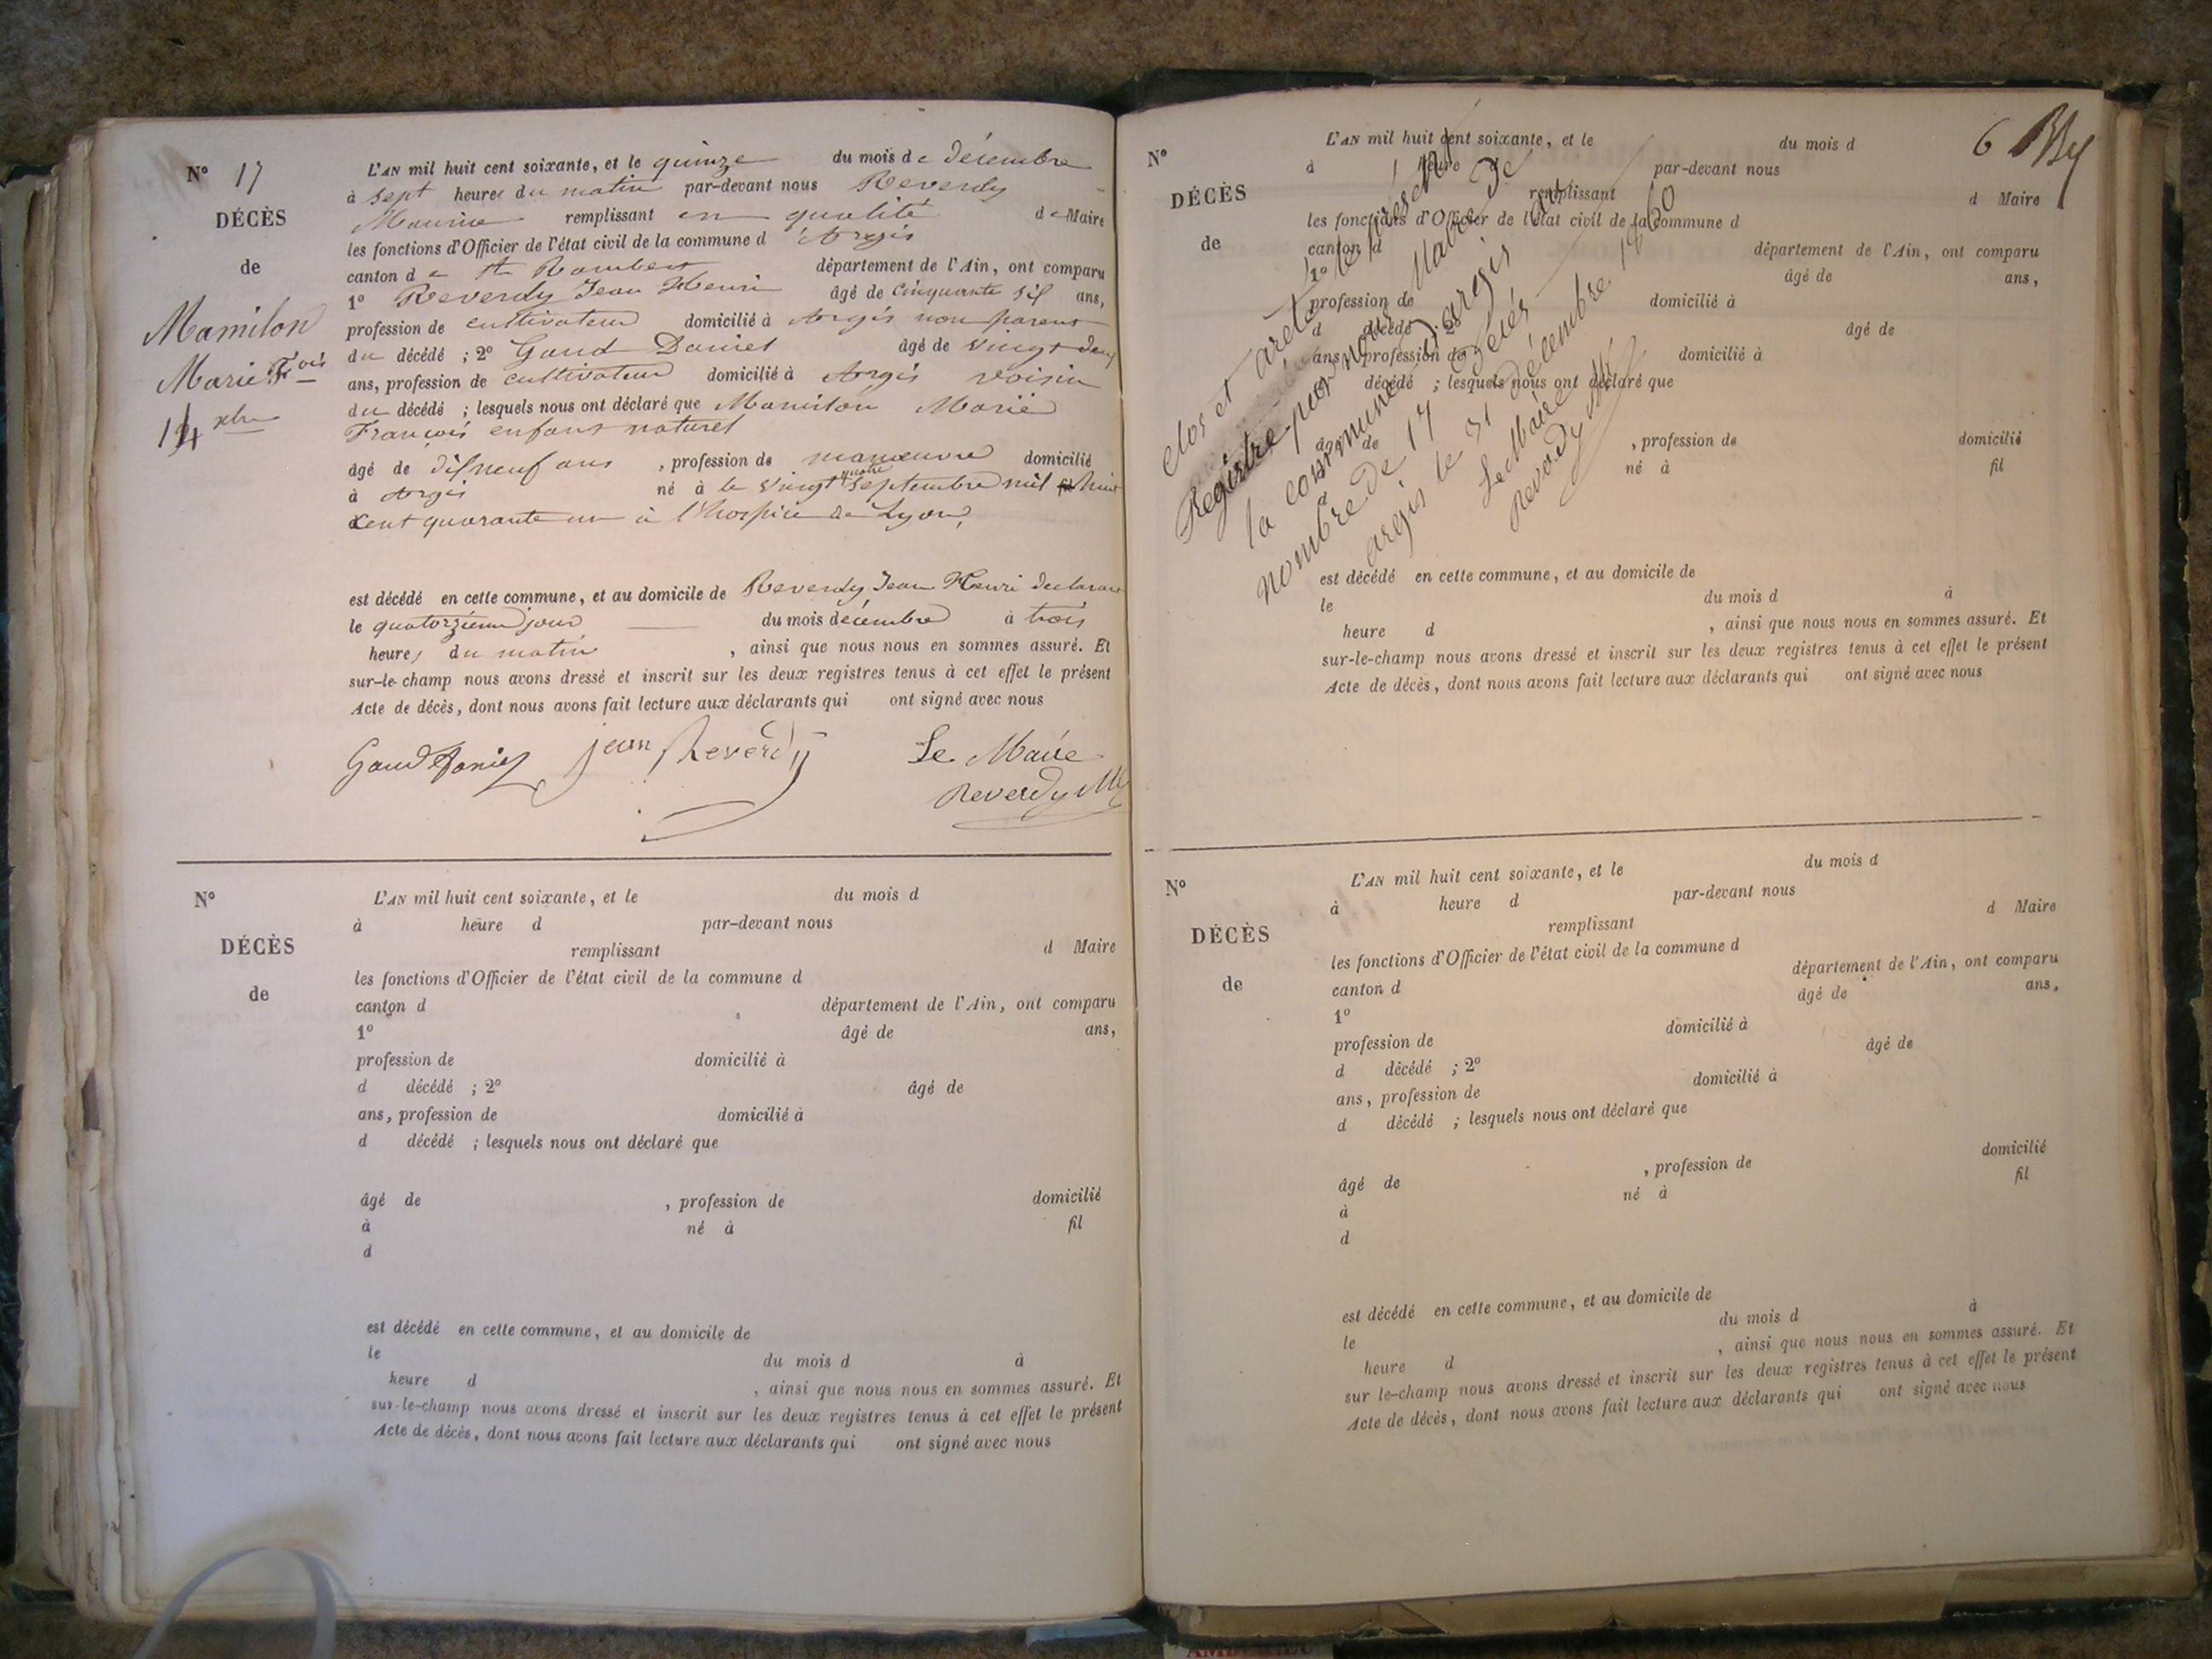 N° 17
DÉCÈS
de
Mamilon
Marie Fois
14 xbre
L'AN mil huit cent soixante, et le quinze du mois de décembre
à sept heures du matin par-devant nous Reverdy
Maurice remplissant en qualité de Maire
les fonctions d'Officier de l'état civil de la commune d'Argis
canton de St Rambert département de l'Ain, ont comparu
1° Reverdy Jean Henri âgé de Cinquante six ans,
profession de cultivateur domicilié à Argis non parent
du décédé ; 2° Gaud Daniel âgé de vingt deux
ans, profession de cultivateur domicilié à Argis voisin
du décédé ; lesquels nous ont déclaré que Mamilon Marie
François enfant naturel
âgé de disneuf ans , profession de manœuvre domicilié
à Argis né à le vingt quatre septembre mil huit
cent quarante un à l'hospice de Lyon,
est décédé en cette commune, et au domicile de Reverdy Jean Henri declarant
le quatorzieme jour du mois décembre à trois
heures du matin , ainsi que nous nous en sommes assuré. Et
sur-le-champ nous avons dressé et inscrit sur les deux registres tenus à cet effet le présent
Acte de décès, dont nous avons fait lecture aux déclarants qui ont signé avec nous
Gaud Daniel jean Reverdy Le Maire
Reverdy
N°
DÉCÈS
de
L'AN mil huit cent soixante, et le du mois d
à heure d par-devant nous
remplissant d Maire
les fonctions d'Officier de l'état civil de la commune d
canton d département de l'Ain, ont comparu
1° âgé de ans,
profession de domicilié à
d décédé ; 2° âgé de
ans, profession de domicilié à
d décédé ; lesquels nous ont déclaré que
âgé de , profession de domicilié
à né à fil
d
est décédé en cette commune, et au domicile de
le du mois d à
heure d , ainsi que nous nous en sommes assuré. Et
sur-le-champ nous avons dressé et inscrit sur les deux registres tenus à cet effet le présent
Acte de décès, dont nous avons fait lecture aux déclarants qui ont signé avec nous
6
N°
DÉCÈS
de
L'AN mil huit cent soixante, et le du mois d
à heure par-devant nous
remplissant d Maire
les fonctions d'Officier de l'état civil de la commune d
canton d département de l'Ain, ont comparu
1° âgé de ans,
profession de domicilié à
d décédé ; 2° âgé de
ans, profession de domicilié à
décédé ; lesquels nous ont déclaré que
âgé de , profession de domicilié
né à fil
est décédé en cette commune, et au domicile de
le du mois d à
heure d , ainsi que nous nous en sommes assuré. Et
sur-le-champ nous avons dressé et inscrit sur les deux registres tenus à cet effet le présent
Acte de décès, dont nous avons fait lecture aux déclarants qui ont signé avec nous
Clos et areté le présent
Registre par nous Maire de
la commune d'argis au
nombre de 17 décés
argis le 31 décembre 1860
Le Maire
Reverdy
N°
DÉCÈS
de
L'AN mil huit cent soixante, et le du mois d
à heure d par-devant nous
remplissant d Maire
les fonctions d'Officier de l'état civil de la commune d
canton d département de l'Ain, ont comparu
1° âgé de ans,
profession de domicilié à
d décédé ; 2° âgé de
ans, profession de domicilié à
d décédé ; lesquels nous ont déclaré que
âgé de , profession de domicilié
à né à fil
d
est décédé en cette commune, et au domicile de
le du mois d à
heure d , ainsi que nous nous en sommes assuré. Et
sur le-champ nous avons dressé et inscrit sur les deux registres tenus à cet effet le présent
Acte de décès, dont nous avons fait lecture aux déclarants qui ont signé avec nous